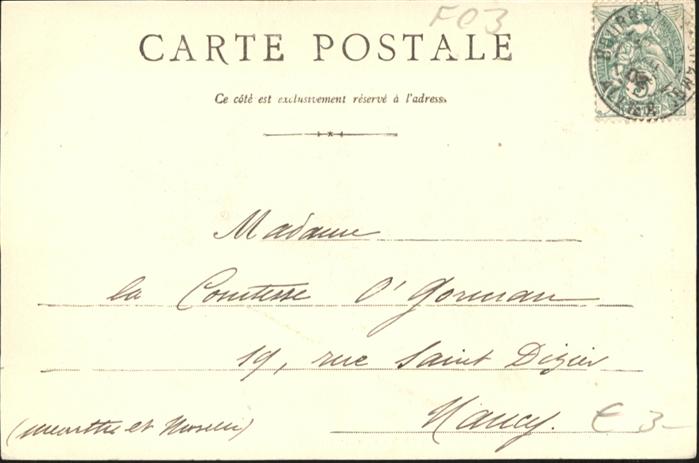 FC3
CARTE POSTALE
Ce côté est exclusivement réservé à l'adresse
Madame
la Comtesse O'Gorman
19, rue Saint Dizier
Nancy. € 3-
(Meurthe et Moselle)